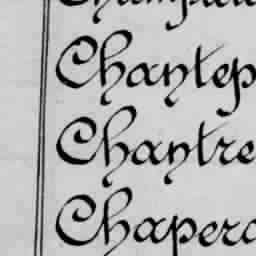 Chantep
Chantre
Chapero